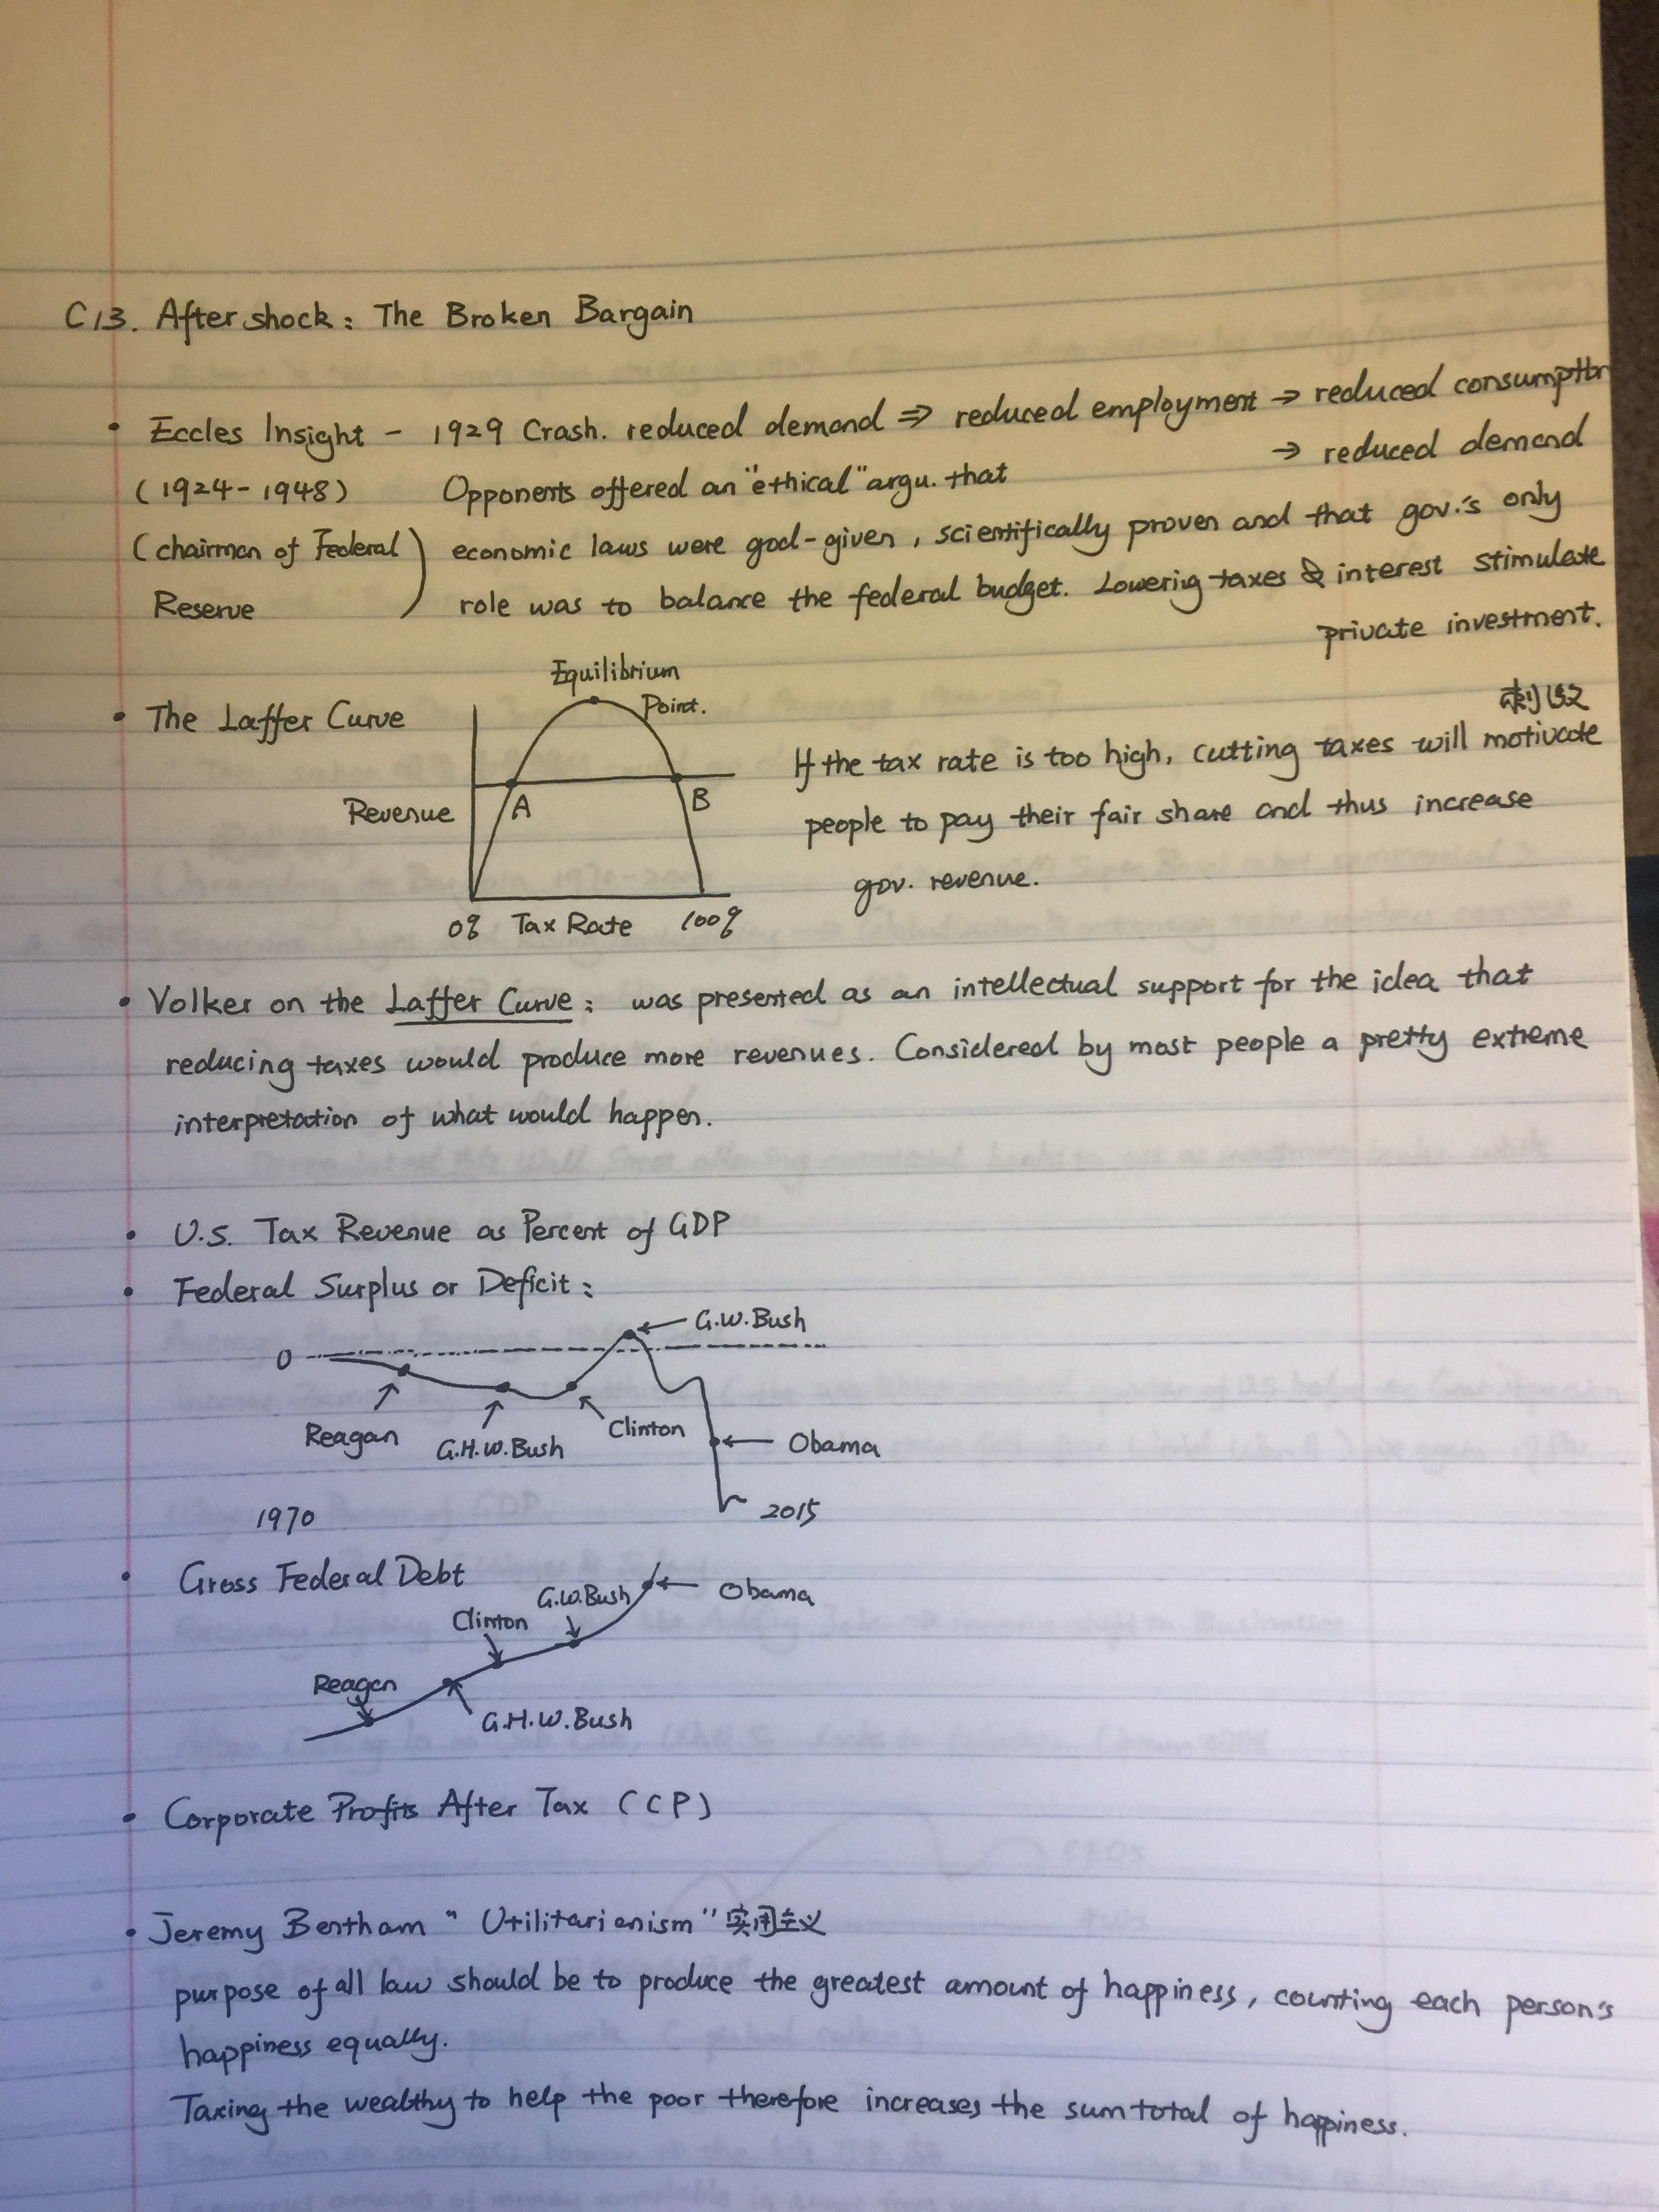 C13. Aftershock: The Broken Bargain
• Eccles Insight - 1929 Crash. reduced demand ⇒ reduced employment → reduced consumption
→ reduced demand
(1924-1948) Opponents offered an "ethical" argu. that
(chairman of Federal Reserve) economic laws were god-given, scientifically proven and that gov.'s only
role was to balance the federal budget. Lowering taxes & interest stimulate
private investment.
刺激
• The Laffer Curve
Equilibrium
Point.
A
B
Revenue
0%
Tax Rate
100%
If the tax rate is too high, cutting taxes will motivate
people to pay their fair share and thus increase
gov. revenue.
• Volker on the Laffer Curve: was presented as an intellectual support for the idea that
reducing taxes would produce more revenues. Considered by most people a pretty extreme
interpretation of what would happen.
• U.S. Tax Revenue as Percent of GDP
• Federal Surplus or Deficit:
G.W.Bush
0
Reagan
G.H.W.Bush
Clinton
Obama
1970
2015
• Gross Federal Debt
Obama
G.W.Bush
Clinton
Reagan
G.H.W.Bush
• Corporate Profits After Tax (CP)
• Jeremy Bentham "Utilitarianism" 实用主义
purpose of all law should be to produce the greatest amount of happiness, counting each person's
happiness equally.
Taxing the wealthy to help the poor therefore increases the sum total of happiness.